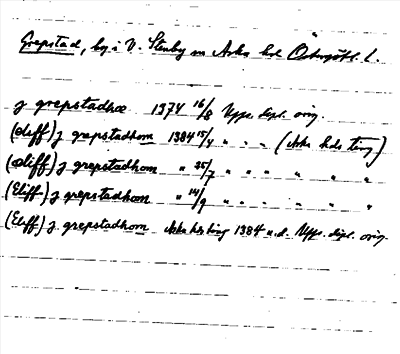 Grepstad, by i V. Stenby sn Aska hd Östergötl. l.
j grepstadhœ 1374 16/8 Upps. dipl. orig.
(Œliff) j grepstadhom 1384 15/4 " " " (Aska hds ting)
(Œliff) j grepstadhom " 25/7 " " " " " "
(Eliff) j grepstadhom " 14/9 " " " " " "
(Eliff) j grepstadhom Aska hds ting 1384 u.d. Upps. dipl. orig.